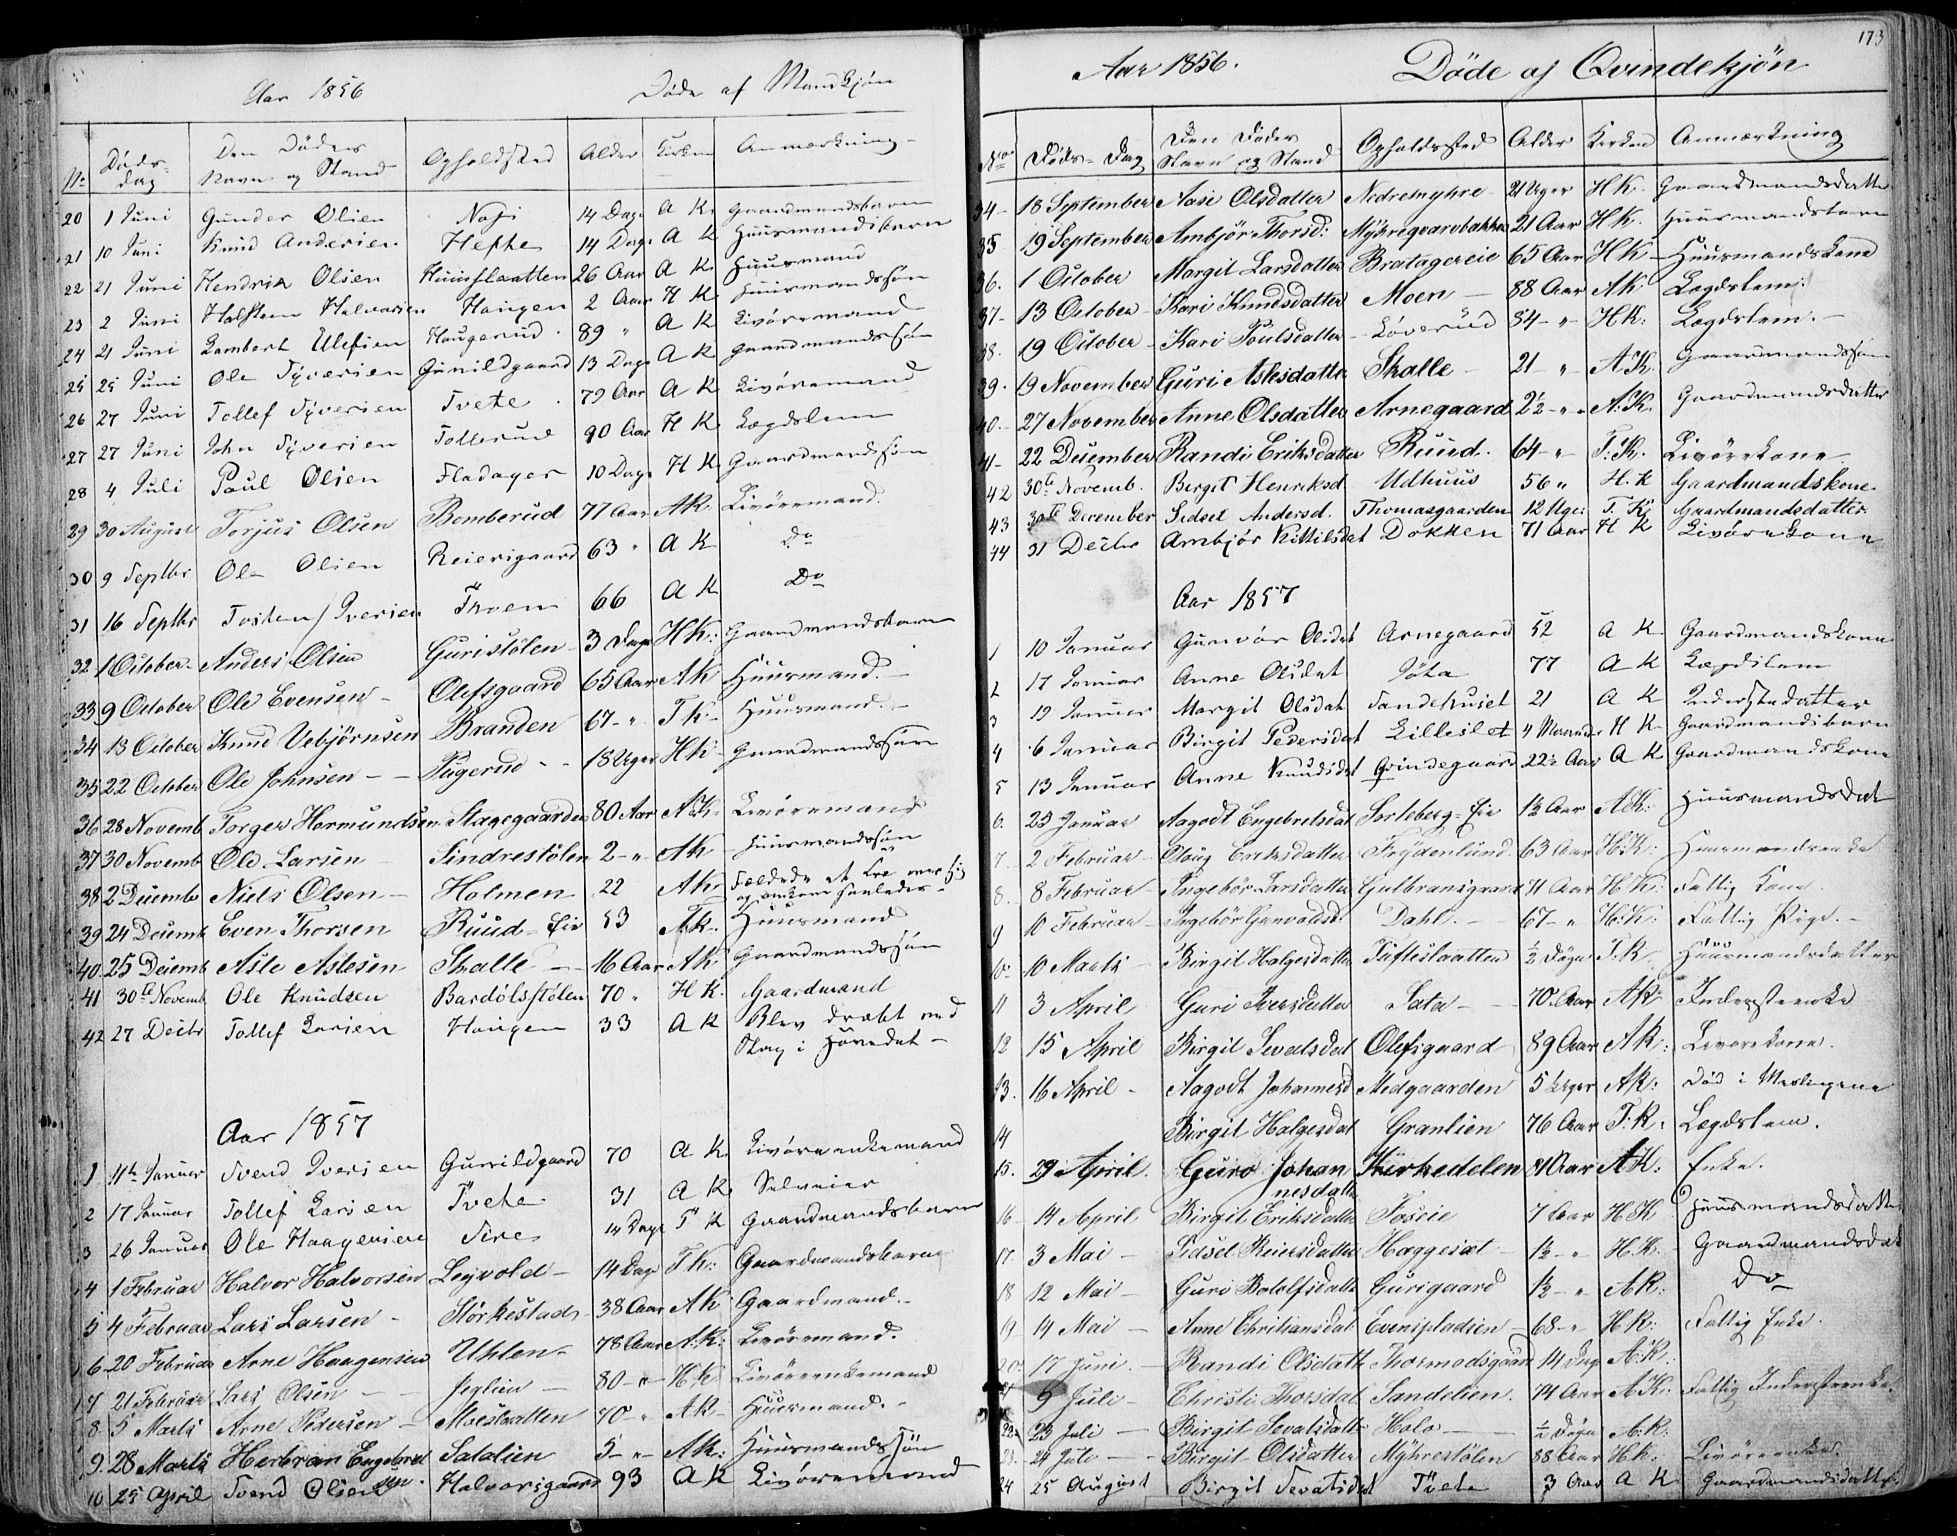 Aar 1856 Döde af Mandkjön
No Döds-dag Den Dödes Navn og Stand Opholdsted Alder Kirken Anmerkning
20 1 Juni Gunder Olsen 14 Dage A K Gaardmandsbarn
21 10 Juni Knud Andersen Hefte 14 Dage A K Huusmandsbarn
22 21 Juni Hendrik Olsen 26 Aar A K Huusmand
23 2 Juni Halsten Halvorsen Haugen 2 Aar H K Huusmandssön
24 21 Juni Lambert Ulefsen Haugerud 89 " A K Livöremand
25 25 Juni Ole Syversen Gunildgaard 13 Dage A K Gaardmandssön
26 27 Juni Tollef Syversen Tvete 79 Aar A K Livöremand
27 27 Juni John Syversen Tollerud 90 Aar H K Lægdslem
28 4 Juli Paul Olsen Fladager 10 Dage H K Gaardmandssön
29 30 August Torjus Olsen Bomberud 77 Aar A K. Livöremand.
30 9 Septbr Ole Olsen Reiersgaard 63 " A K Do
31 16 Septbr Tosten Iversen Thoen 66 A K Do
32 1 October Anders Olsen Guristölen 3 Dage H K: Gaardmandsbarn
33 9 October Ole Evensen Olefsgaard 65 Aar A K Huusmand.
34 13 October Knud Vebjörnsen Branden 67 " T K Huusmand.
35 22 October Ole Johnsen 18 Uger H K Gaardmandssön
36 28 Novemb Torger Hermundsen Slagegaarden 80 Aar A K Livöremand
37 30 Novemb Ole Larsen Sindrestölen 2 " A K Huusmandssön
38 2 Decemb Niels Olsen Holmen 22 A K Fældede et Træ over sig
39 24 Decemb Even Thorsen Ruud-Eie 53 T K. Huusmand
40 25 Decemb Asle Aslesen Skalle 16 Aar A K Gaardmandssön
41 30te Novemb Ole Knudsen Bardölsstölen 70 " H K. Gaardmand
42 27 Decbr Tollef Larsen Haugen 33 A K Blev dræbt ved
Slag i Hovedet
Aar 1857
1 11te Januar Svend Iversen Gunildgaard 70 A K Livöreenkemand
2 17 Januar Tollef Larsen Tvete 31 A K Selveier
3 26 Januar Ole Haagensen Sire 14 Dage T K Gaardmandsbarn
4 1 Februar Halvor Halvorsen Leqvold 14 Dage T K: Gaardmandsbarn
5 4 Februar Lars Larsen Störkestad 38 Aar A K Gaardmand.
6 20 Februar Arne Haagensen Uhlen 78 Aar A K: Livöremand.
7 21 Februar Lars Olsen Jeglien 80 " H K Livöreenkemand
8 5 Marts Arne Pedersen Moeslaatten 70 " A K Huusmand.
9. 28 Marts Herbran Engebret Salalien 5 " A K: Huusmandssön
sen.
10 25 April Svend Olsen Halvorsgaard 93 A K Livöremand
173
Aar 1856. Döde af Qvindekjön
No Döds-Dag Den Dödes Navn og Stand Opholdssted Alder Kirken Anmærkning
34 18 September Aase Olsdatter Nedremyhre 21 Uger H K. Gaardmandsdatter
35 19 September Ambjör Thorsd: Myhregaardbakken 21 Aar H K. Huusmandsbarn
36. 1 October Margit Larsdatter Bratagereie 65 Aar H K Huusmandskone
37 13 October Kari Knudsdatter Moen 88 Aar A K Lægdslem:
38. 19 October Kari Poulsdatter Löverud 84 " H K: Lægdslem.
39. 19 November Guri Aslesdatter Skalle 21 " A. K. Gaardmandssön
40. 27 November Anne Olsdatter Arnegaard 2½ " A. K. Gaardmandsdatter
41 22 December Randi Eriksdatter Ruud. 64 " T. K. Livörekone
42 30te Novemb. Bergit Henriksd Udhuus 56 " H. K Gaardmandskone
43 30te December Sidsel Andersd. Thomasgaarden 12 Uger T. K. Gaardmandsdatter
44 31 Decbr Ambjör Kittilsdat Dokken 71 Aar H K Livörekone
Aar 1857
1 10 Januar Gunvör Olsdat Arnegaard 52 A K Gaardmandskone
2 17 Januar Anne Olsdat 77 A K Lægdslem
3 19 Januar Margit Olsdat Sandehuset 21 A K Inderstedatter
4 6 Januar Birgit Pedersdat Lilleslet 4 Maaneder H K Gaardmandsbarn
5 13 Januar Anne Knudsdat Grindegaard 22½ Aar A K Gaardmandskone
6. 23 Januar Aagodt Engebretsdat Sorteberg-Eie 1½ Aar A K: Huusmandsdat
7. 2 Februar Olaug Eriksdatter Frydenlund 63 Aar H: K: Huusmandsenke
8. 8 Februar Ingebör Larsdatter Gulbransgaard 71 Aar H K: Fattig Kone.
9 10 Februar Ingebör Gunvaldsd: Dahl. 67 " H: K: Fattig Pige.
10 10 Marts Birgit Halgesdatter Tufteslaatten ½ Dögn T. K. Huusmandsdatter
11 3 April Guri Iversdatter Sata 70 Aar A K: Inderstenke
12 15 April Birgit Sevalsdat Olefsgaard 89 Aar A K: Livörekone.
13. 16 April Aagodt Johannesd Medgaarden 5 Uger A K: Död i Meslingene
14 Birgit Halgesdat Grantien 76 Aar T. K. Lægdslem.
15. 29 April. Guro Johan Kirkedelen 81 Aar A K: Enke.
nesdatter
16 14 April Birgit Eriksdatter Foseie 7 Aar H K Huusmandsdatter
17. 3 Mai Sidsel Reiersdatter Haggeset 1½ " H K: Gaardmandsdat
18 12 Mai Guri Botolfsdatter Gurigaard 1½ " A K: Do
19 14 Mai Anne Christiansdat Evenspladsen 68 " H K: Fattig Enke.
20 17 Juni. Randi Olsdatt Thormodsgaard 14 Dage A: K:
21 9 Juli Christi Thorsdat Sandelien. 74 Aar A K: Fattig Inderstenke.
22 23 Juli Birgit Sevatsdatt Holo ½ Dögn A: K:
23. 24 Juli Birgit Olsdatter Myhrestölen 88 Aar H K: Livöreenke
24 25 August Birgit Sevatsdat Tvete 3 Aar A K Gaardmandsdatter